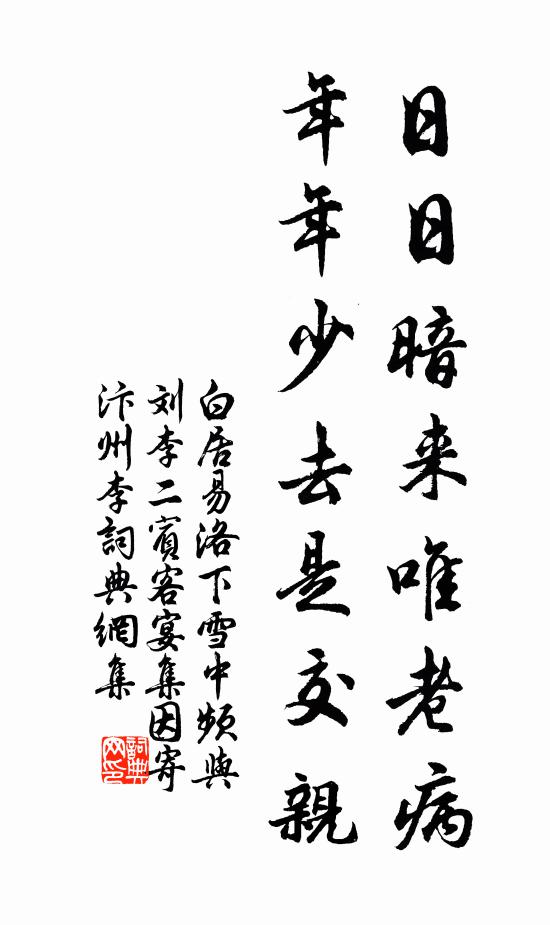 日日暗来唯老病
年年少去是交親
白居易洛下雪中頻與
刘李二賓客宴集因寄
汴州李詞典網集
詞典
网印